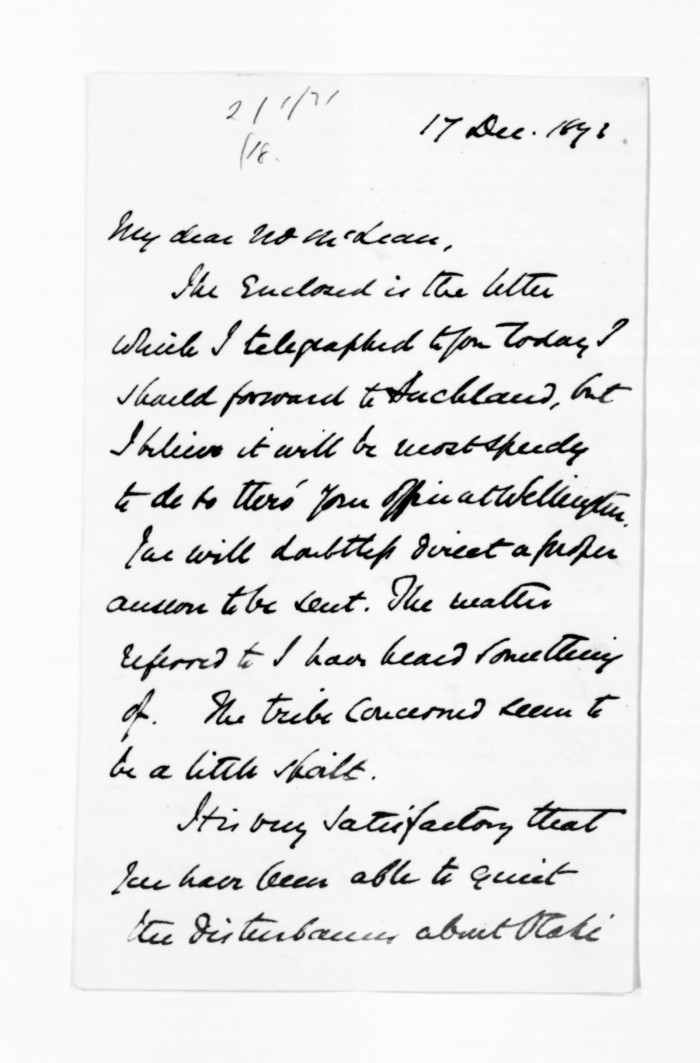 17 Dec. 1873
My dear Mr McLean,
The Enclosed is the letter
which I telegraphed to you today I
should forward to Auckland, but
I believe it will be most speedy
to do so thro' your office at Wellington.
You will doubtless direct a proper
answer to be sent. The matter
referred to I have heard something
of. The tribe concerned seem to
be a little spoilt.
It is very satisfactory that
you have been able to quiet
the disturbances about Otaki